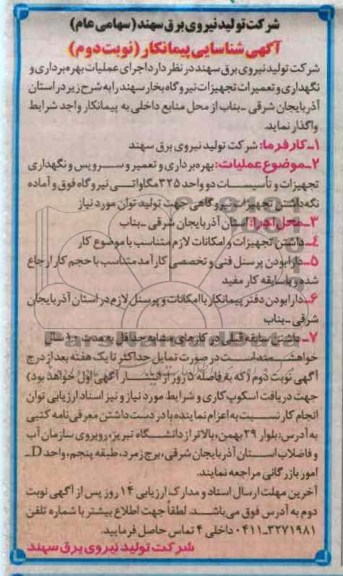 شرکت تولید نیروی برق سهند (سهامی عام)
آگهی شناسایی پیمانکار (نوبت دوم)
شرکت تولید نیروی برق سهند در نظر دارد اجرای عملیات بهره‌برداری و
نگهداری و تعمیرات تجهیزات نیروگاه بخار سهند را به شرح زیر در استان
آذربایجان شرقی - بناب از محل منابع داخلی به پیمانکار واجد شرایط
واگذار نماید.
۱- کارفرما: شرکت تولید نیروی برق سهند
۲- موضوع عملیات: بهره‌برداری و تعمیر و سرویس و نگهداری
تجهیزات و تأسیسات دو واحد ۳۲۵ مگاواتی نیروگاه فوق و آماده
نگه‌داشتن تجهیزات نیروگاهی جهت تولید توان مورد نیاز
۳- محل اجرا: استان آذربایجان شرقی - بناب
۴- داشتن تجهیزات و امکانات لازم متناسب با موضوع کار
۵- دارا بودن پرسنل فنی و تخصصی کارآمد متناسب با حجم کار ارجاع
شده و با سابقه کار مفید
۶- دارا بودن دفتر پیمانکار با امکانات و پرسنل لازم در استان آذربایجان
شرقی - بناب
۷- داشتن سابقه قبلی در کارهای مشابه حداقل به مدت ۱۰ سال
خواهشمند است در صورت تمایل حداکثر تا یک هفته بعد از درج
آگهی نوبت دوم (که به فاصله ۵ روز از انتشار آگهی اول خواهد بود)
جهت دریافت اسکوپ کاری و شرایط مورد نیاز و نیز اسناد ارزیابی توان
انجام کار نسبت به اعزام نماینده با در دست داشتن معرفی‌نامه کتبی
به آدرس: بلوار ۲۹ بهمن، بالاتر از دانشگاه تبریز، روبروی سازمان آب
و فاضلاب استان آذربایجان شرقی، برج زمرد، طبقه پنجم، واحد D-
امور بازرگانی مراجعه نمایند.
آخرین مهلت ارسال اسناد و مدارک ارزیابی ۱۴ روز پس از آگهی نوبت
دوم به آدرس فوق می‌باشد. لطفاً جهت اطلاع بیشتر با شماره تلفن
۳۳۷۱۹۸۱-۰۴۱۱ داخلی ۴ تماس حاصل فرمایید.
شرکت تولید نیروی برق سهند